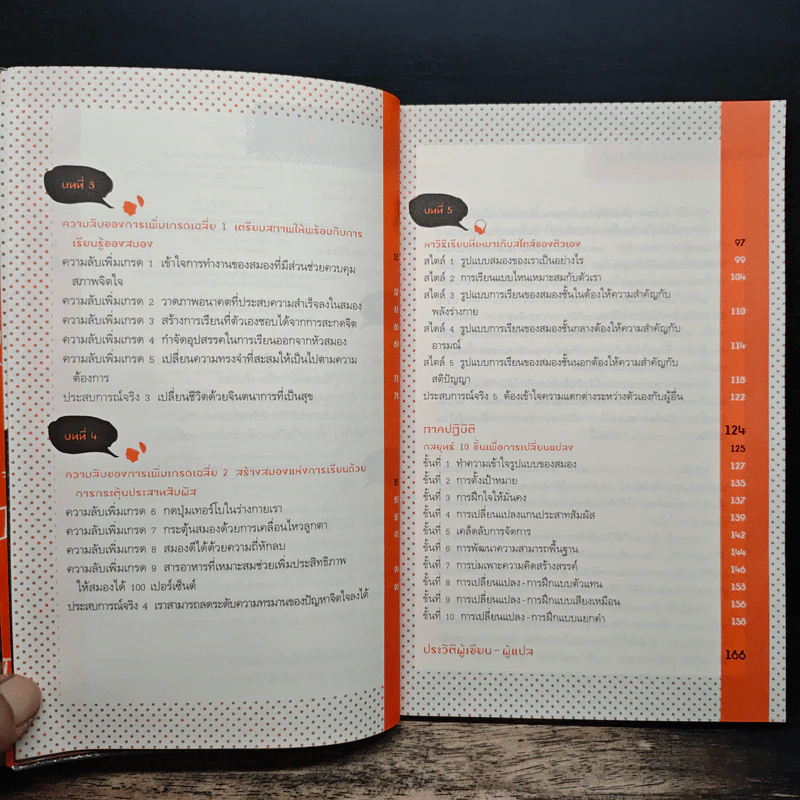 บทที่ 3
ความลับของการเพิ่มเกรดเฉลี่ย 1 เตรียมสภาพให้พร้อมกับการ
เรียนรู้ของสมอง
ความลับเพิ่มเกรด 1 เข้าใจการทำงานของสมองที่มีส่วนช่วยควบคุม
สภาพจิตใจ
ความลับเพิ่มเกรด 2 วาดภาพอนาคตที่ประสบความสำเร็จลงในสมอง
ความลับเพิ่มเกรด 3 สร้างการเรียนที่ตัวเองชอบได้จากการสะกดจิต
ความลับเพิ่มเกรด 4 กำจัดอุปสรรคในการเรียนออกจากหัวสมอง
ความลับเพิ่มเกรด 5 เปลี่ยนความทรงจำที่สะสมให้เป็นไปตามความ
ต้องการ
ประสบการณ์จริง 3 เปลี่ยนชีวิตด้วยจินตนาการที่เป็นสุข
บทที่ 4
ความลับของการเพิ่มเกรดเฉลี่ย 2 สร้างสมองแห่งการเรียนด้วย
การกระตุ้นประสาทสัมผัส
ความลับเพิ่มเกรด 6 กดปุ่มเทอร์โบในร่างกายเรา
ความลับเพิ่มเกรด 7 กระตุ้นสมองด้วยการเคลื่อนไหวลูกตา
ความลับเพิ่มเกรด 8 สมองดีได้ด้วยความถี่หักลบ
ความลับเพิ่มเกรด 9 สารอาหารที่เหมาะสมช่วยเพิ่มประสิทธิภาพ
ให้สมองได้ 100 เปอร์เซ็นต์
ประสบการณ์จริง 4 เราสามารถลดระดับความทรมานของปัญหาจิตใจลงได้
บทที่ 5
หาวิธีเรียนที่เหมาะกับสไตล์ของตัวเอง 97
สไตล์ 1 รูปแบบสมองของเราเป็นอย่างไร 99
สไตล์ 2 การเรียนแบบไหนเหมาะสมกับตัวเรา 104
สไตล์ 3 รูปแบบการเรียนของสมองชั้นในต้องให้ความสำคัญกับ
พลังร่างกาย 110
สไตล์ 4 รูปแบบการเรียนของสมองชั้นกลางต้องให้ความสำคัญกับ
อารมณ์ 114
สไตล์ 5 รูปแบบการเรียนของสมองชั้นนอกต้องให้ความสำคัญกับ
สติปัญญา 118
ประสบการณ์จริง 5 ต้องเข้าใจความแตกต่างระหว่างตัวเองกับผู้อื่น 122
ภาคปฏิบัติ 124
กลยุทธ์ 10 ขั้นเพื่อการเปลี่ยนแปลง 125
ขั้นที่ 1 ทำความเข้าใจรูปแบบของสมอง 127
ขั้นที่ 2 การตั้งเป้าหมาย 135
ขั้นที่ 3 การฝึกใจให้มั่นคง 137
ขั้นที่ 4 การเปลี่ยนแปลงแกนประสาทสัมผัส 139
ขั้นที่ 5 เคล็ดลับการจัดการ 142
ขั้นที่ 6 การพัฒนาความสามารถพื้นฐาน 144
ขั้นที่ 7 การบ่มเพาะความคิดสร้างสรรค์ 146
ขั้นที่ 8 การเปลี่ยนแปลง-การฝึกแบบตัวแทน 153
ขั้นที่ 9 การเปลี่ยนแปลง-การฝึกแบบเสียงเหมือน 156
ขั้นที่ 10 การเปลี่ยนแปลง-การฝึกแบบแยกคำ 158
ประวัติผู้เขียน-ผู้แปล 166